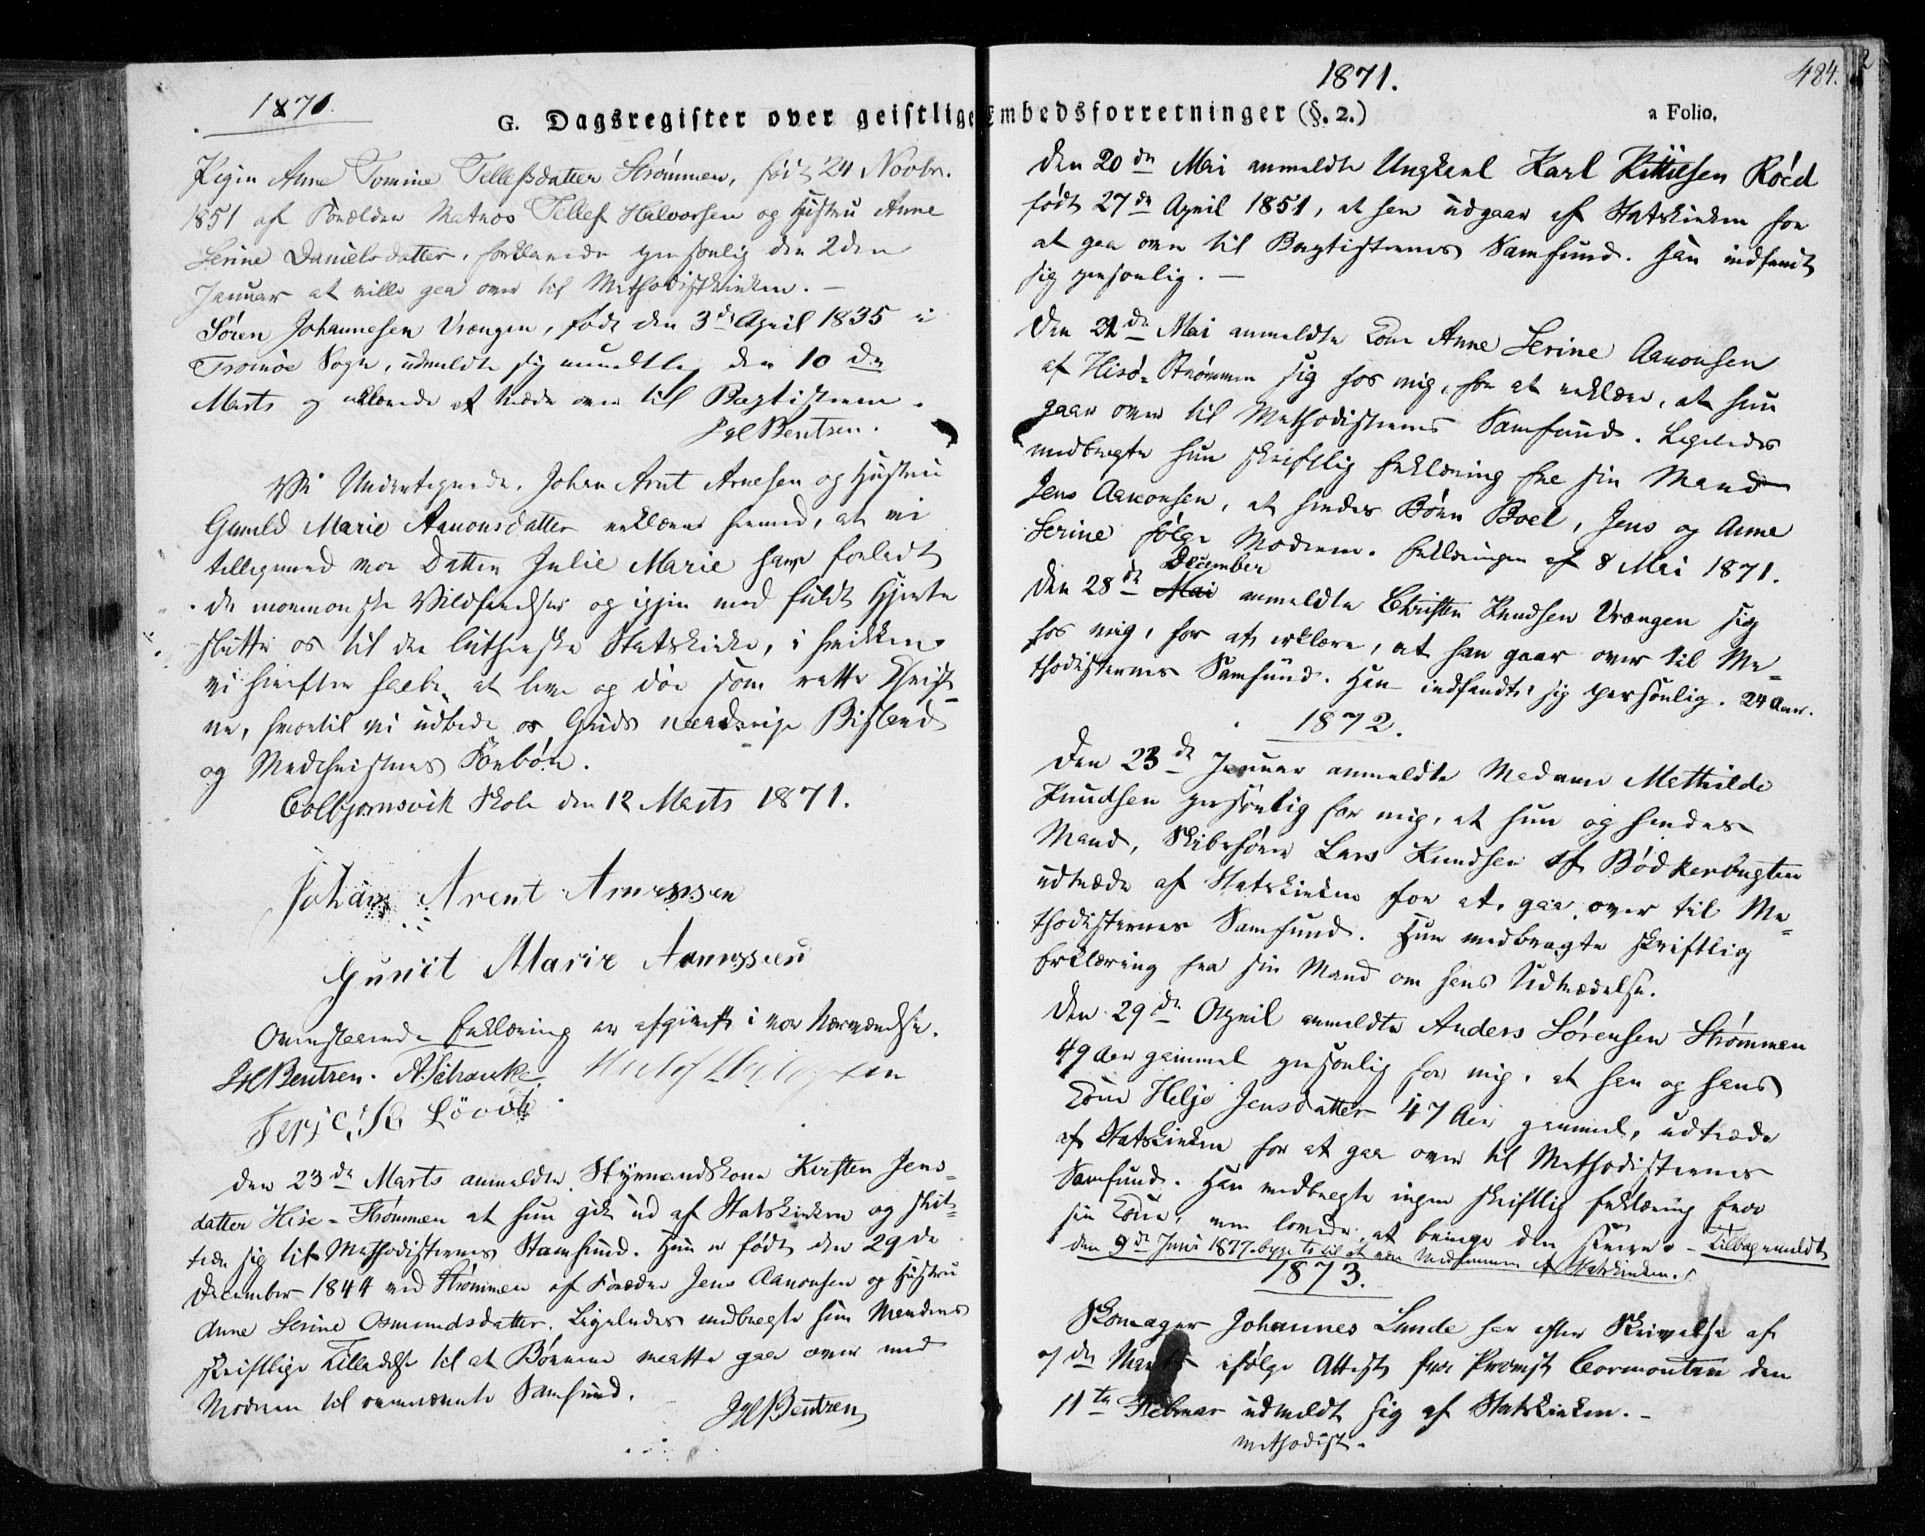 1870.
G. Dagsregister over geistlige Embedsforretninger (§. 2.)
Pigen Anne Tomine Tellefsdatter Strømmen, født 24 Novbr.
1851 af Forældre Matros Tellef Halvorsen og Hustru Anne
Serine Danielsdatter, forklarede personlig den 2den
Januar at ville gaa over til Methodistkirken. —
Sören Johannesen Vrængen, født den 3de April 1835 i
Tromöe Sogn, udmeldte sig mundtlig den 10de
Marts og erklærede at træde over til Baptisterne.
JHBentzen.
Vi Undertegnede, Johan Arnt Arnesen og Hustru
Gunild Marie Aanonsdatter erklærer herved, at vi
tilligemed vor Datter Julie Marie have forladt
de mormonske Vildfarelser og igjen med fuldt Hjerte
slutte os til den lutherske Statskirke, i hvilken
vi herefter haabe at leve og döe som rette Christ-
ne, hvortil vi udbede os Guds naadige Bistand
og Medchristnes Forbön.
Colbjornsvik Skole den 12 Marts 1871.
Johan Arent Arnessen
Gunil Marie Aanessen
Ovenstaaende Erklæring er afgivet i vor Nærværelse.
JHBentzen. A. Schanke.
Terje K Lövdt
Den 23de Marts anmeldte Styrmandskone Kirsten Jens-
datter Hisø-Strømmen at hun gik ud af Statskirken og slut-
tede sig til Methodisternes Samfund. Hun er født den 29de
December 1844 ved Strømmen af Forældre Jens Aanonsen og Hustru
Anne Serine Osmundsdatter. Ligeledes medbragte hun Mandens
skriftlige Tilladelse til at Börnene maatte gaa over med
Moderen til ovennævnte Samfund.
JHBentzen
1871.
484.
a Folio.
Den 20de Mai anmeldte Ungkarl Karl Kittilsen Röed
født 27de April 1851, at han udgaar af Statskirken for
at gaa over til Baptisternes Samfund. Han indfandt
sig personlig. —
Den 21de Mai anmeldte Kone Anne Serine Aanonsen
af Hisö-Strømmen sig hos mig, for at erklære, at hun
gaar over til Methodisternes Samfund. Ligeledes
medbragte hun skriftlig Erklæring fra sin Mand
Jens Aanonsen, at hendes Börn Boel, Jens og Anne
Serine fölge Moderen. Erklæringen af 8 Mai 1871.
December
Den 28de Mai anmeldte Christen Knudsen Vrængen sig
hos mig, for at erklære, at han gaar over til Me-
thodisternes Samfund. Han indfandt sig personlig. 24 Aar.
1872.
Den 23de Januar anmeldte Madame Mathilde
Knudsen personlig for mig, at hun og hendes
Mand, Skibsförer Lars Knudsen af Bödkerbugten
udtræde af Statskirken for at gaa over til Me-
thodisternes Samfund. Hun medbragte skriftlig
Erklæring fra sin Mand om hans Udtrædelse.
Den 29de April anmeldte Anders Sörensen Strømmen
49 Aar gammel personlig for mig, at han og hans
Kone Helje Jensdatter 47 Aar gammel, udtræde
af Statskirken for at gaa over til Methodisternes
Samfund. Han medbragte ingen skriftlig Erklæring fra
sin Kone, men lovede at bringe den senere. - Tilbagemeldt
den 9de Juni 1877 begge to til at være Medlemmer af Statskirken.
1873.
Skomager Johannes Lunde har efter Skrivelse af
Marts ifölge Attest fra Provst Cormontan den
11te Februar udmeldt sig af Statskirken. —
Methodist.